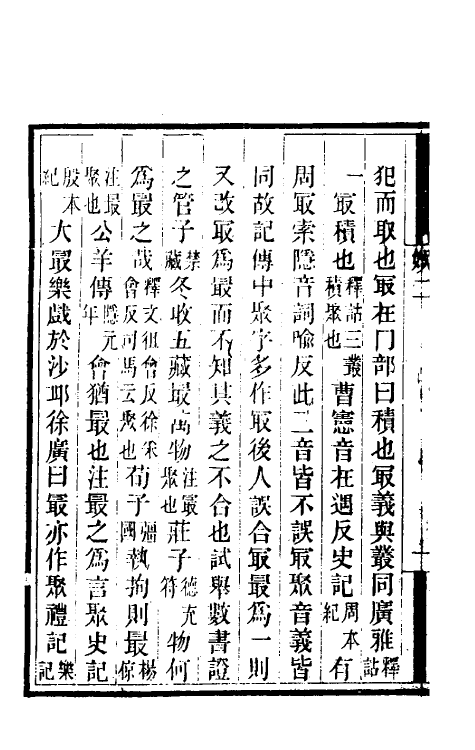 犯而取也冣在冂部曰積也冣義與叢同廣雅釋詁
一冣積也釋詁三叢積聚也曹憲音在遇反史記周本紀有
周冣索隱音詞喻反此二音皆不誤冣聚音義皆
同故記傳中聚字多作冣後人誤合冣最爲一則
又改冣爲最而不知其義之不合也試舉數書證
之管子禁藏冬收五藏最萬物注最聚也莊子德充符物何
爲最之哉釋文徂會反徐采會反司馬云聚也荀子彊國執拘則最楊倞
注最聚也公羊傳隱元年會猶最也注最之爲言聚史記
殷本紀大最樂戲於沙邱徐廣曰最亦作聚禮記樂記